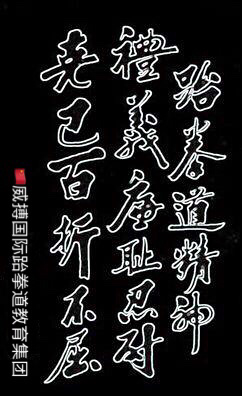 跆拳道精神
禮義廉耻忍耐
克己百折不屈
威搏国际跆拳道教育集团